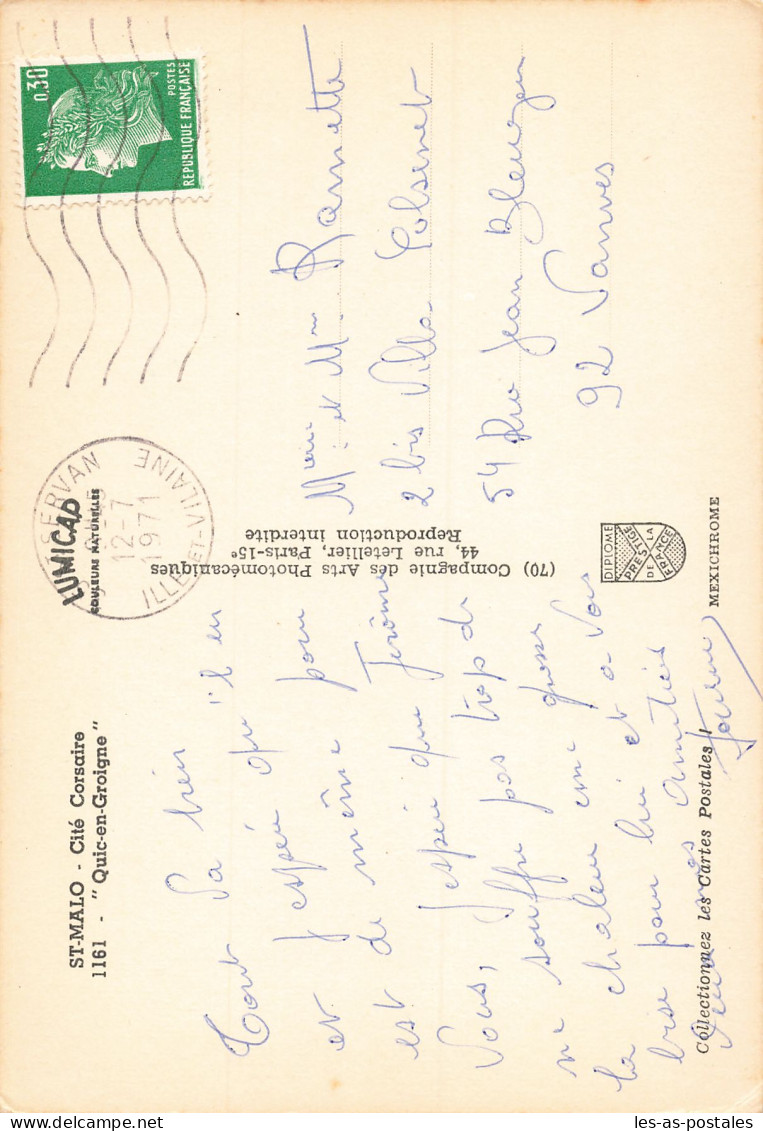 ST-MALO - Cité Corsaire
1161 - " Quic-en-Groigne "
LUMICAP
COULEURS NATURELLES
SERVAN
12-7
1971
ILLE-ET-VILAINE
0,30
POSTES
REPUBLIQUE FRANÇAISE
Tout va bien
et j'espère qu'il en
est de même pour
Vous, j'espère que Jérôme
ne souffre pas trop de
la chaleur une grosse
bise pour lui et à Vous
mes amitiés
(70) Compagnie des Arts Photomécaniques
44, rue Letellier, Paris-15e
Reproduction interdite
et Mr Ramette
2 bis Villa
54 Rue Jean Bleuzen
92 Vanves
DIPLOME
PRESTIGE
DE LA
FRANCE
MEXICHROME
Collectionnez les Cartes Postales !
les-as-postales